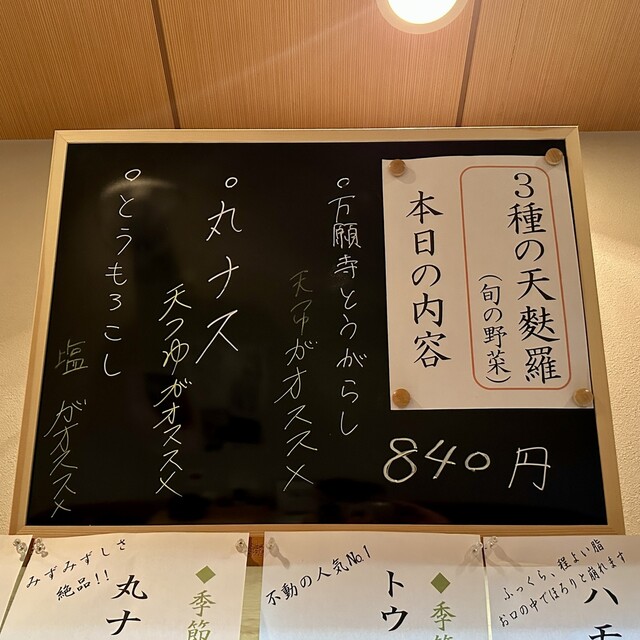 3種の天麩羅
(旬の野菜)
本日の内容
840円
○万願寺とうがらし
天つゆがオススメ
○丸ナス
天つゆがオススメ
○とうもろこし
塩がオススメ
ふっくら、程よい脂
お口の中でほろりと崩れます
ハモ
◆季節
不動の人気No.1
トウ
◆季節
みずみずしさ
絶品!!
丸ナ